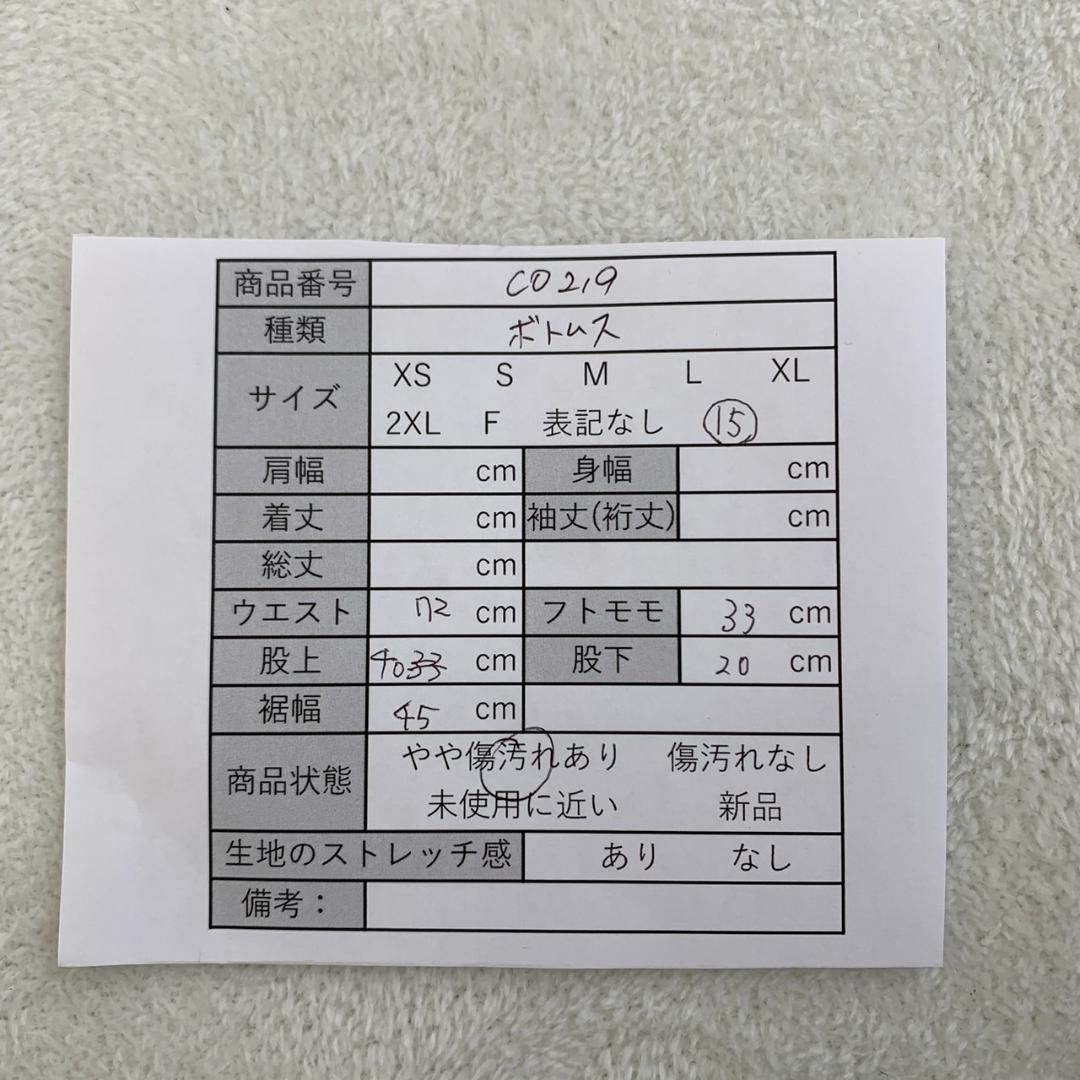 商品番号 CO219
種類 ボトムス
サイズ XS S M L XL
2XL F 表記なし 15
肩幅 cm 身幅 cm
着丈 cm 袖丈(裄丈) cm
総丈 cm
ウエスト 72 cm フトモモ 33 cm
股上 4033 cm 股下 20 cm
裾幅 45 cm
商品状態 やや傷汚れあり 傷汚れなし
未使用に近い 新品
生地のストレッチ感 あり なし
備考：